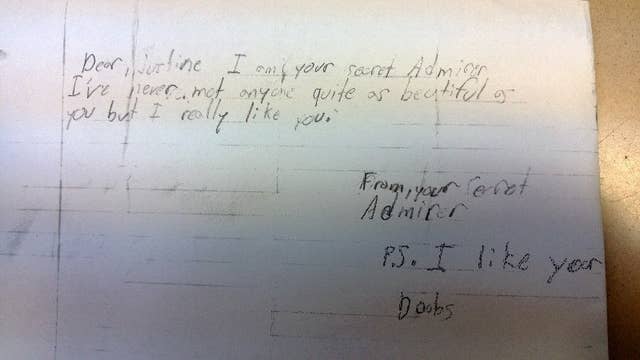 Dear, Justine I am your secret Admirer
I've never met anyone quite as beutiful as
you but I really like you.
From, your secret
Admirer
P.S. I like your
Doobs